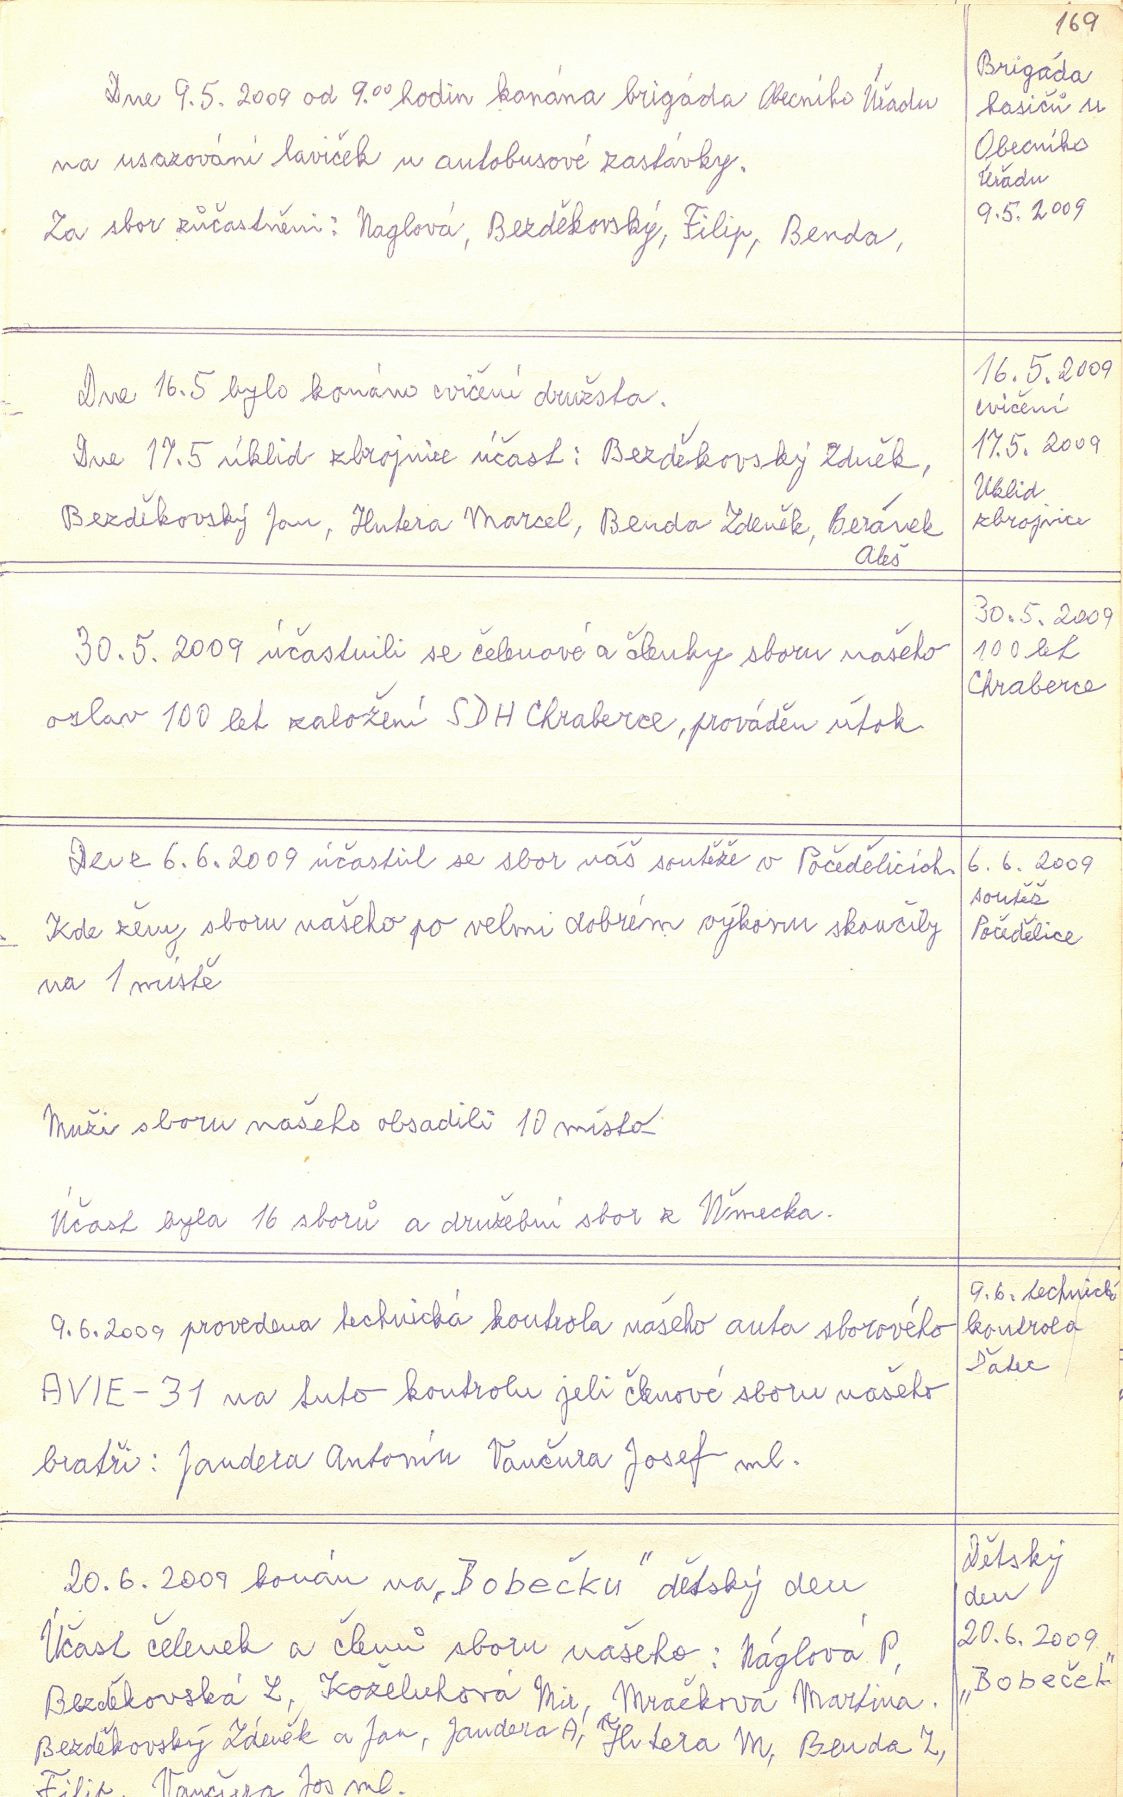 169
Dne 9.5. 2009 od 9.00 hodin konána brigáda Obecního Úřadu
na usazování laviček u autobusové zastávky.
Za sbor zůčastněni: Naglová, Bezděkovský, Filip, Benda,
Brigáda
hasičů u
Obecního
Úřadu
9.5. 2009
Dne 16.5 bylo konáno cvičení družsta.
Dne 17.5 úklid zbrojnice účast: Bezděkovský Zdněk,
Bezděkovský Jan, Hutera Marcel, Benda Zdeněk, Beránek
Aleš
16.5.2009
cvičení
17.5. 2009
Uklid
zbrojnice
30.5. 2009 účastnili se čelenové a členky sboru našeho
oslav 100 let založení SDH Chraberce, prováděn útok
30.5. 2009
100 let
Chraberce
Dene 6.6.2009 účastnil se sbor náš soutěže v Počedělicích.
Kde ženy sboru našeho po velmi dobrém výkonu skončily
na 1 místě
Muži sboru našeho obsadili 10 místo
Účast byla 16 sborů a družební sbor z Německa.
6.6. 2009
soutěž
Počedělice
9.6.2009 provedena technická kontrola našeho auta sborového
AVIE-31 na tuto kontrolu jeli členové sboru našeho
bratři: Jandera Antonín Vančura Josef ml.
9.6. technická
kontrola
Žatec
20.6.2009 konán na „Bobečku" dětský den
Účast čelenek a členů sboru našeho: Náglová P,
Bezděkovská Z, Koželuhová Mir, Mračková Martina.
Bezděkovský Zdeněk a Jan, Jandera A, Hutera M, Benda Z,
Filip, Vančura Jos ml.
Dětský
den
20.6.2009
„Bobeček"